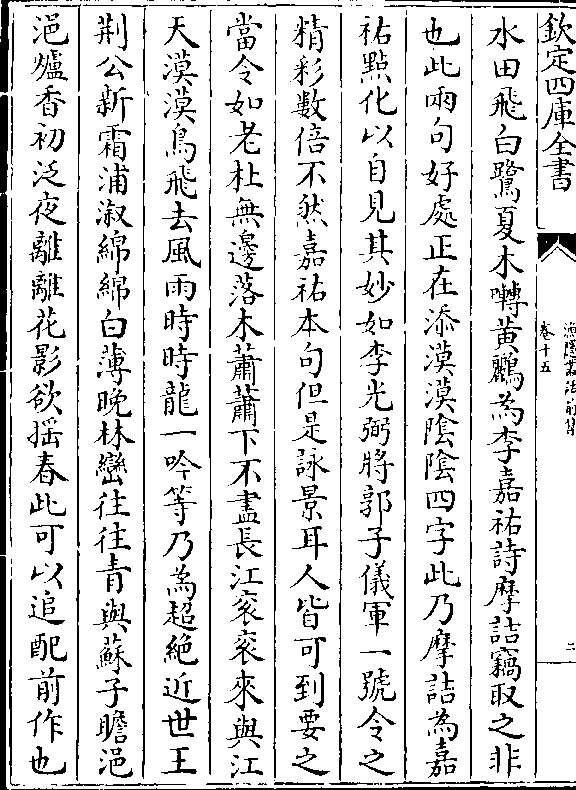 欽定四庫全書
漁隱叢話前集
卷十五
二
水田飛白鷺夏木囀黃鸝為李嘉祐詩摩詰竊取之非
也此兩句好處正在添漠漠陰陰四字此乃摩詰為嘉
祐點化以自見其妙如李光弼將郭子儀軍一號令之
精彩數倍不然嘉祐本句但是詠景耳人皆可到要之
當令如老杜無邊落木蕭蕭下不盡長江衮衮來與江
天漠漠鳥飛去風雨時時龍一吟等乃為超絶近世王
荆公新霜浦溆綿綿白薄晚林巒往往青與蘇子瞻浥
浥爐香初泛夜離離花影欲揺春此可以追配前作也